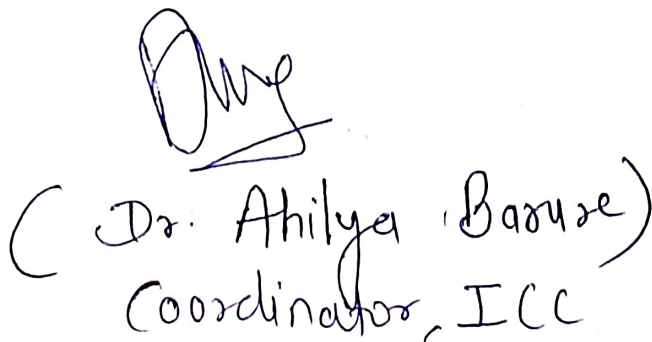 ( Dr. Ahilya Barure)
Coordinator, ICC